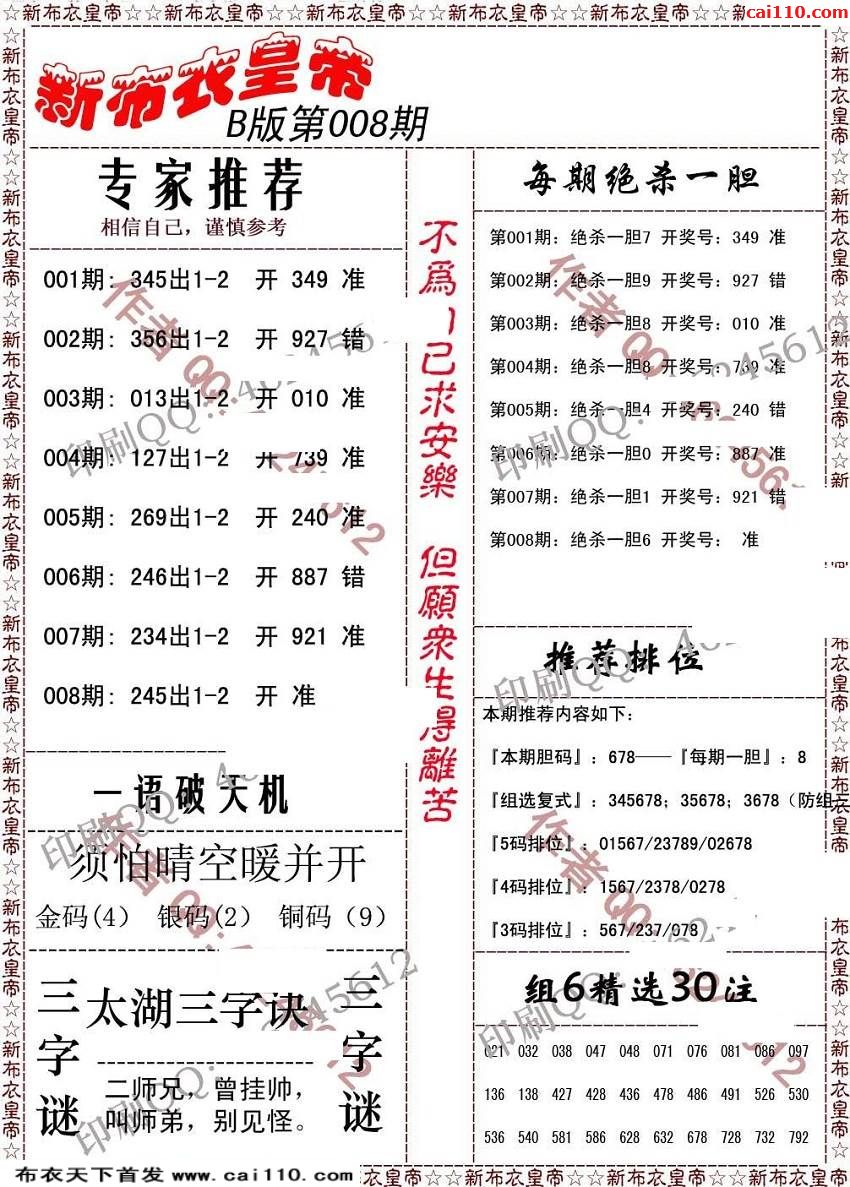 ☆新布衣皇帝☆☆新布衣皇帝☆☆新布衣皇帝☆☆新布衣皇帝☆☆新布衣皇帝☆☆新
cai110.com
新布衣皇帝
B版第008期
专家推荐
相信自己，谨慎参考
001期：345出1-2 开 349 准
002期：356出1-2 开 927 错
003期：013出1-2 开 010 准
004期：127出1-2 开 739 准
005期：269出1-2 开 240 准
006期：246出1-2 开 887 错
007期：234出1-2 开 921 准
008期：245出1-2 开 准
一语破天机
须怕晴空暖并开
金码(4) 银码(2) 铜码（9）
三字谜
太湖三字诀
二师兄，曾挂帅，
叫师弟，别见怪。
三字谜
不爲
己求安樂
但願衆生得離苦
每期绝杀一胆
第001期：绝杀一胆7 开奖号：349 准
第002期：绝杀一胆9 开奖号：927 错
第003期：绝杀一胆8 开奖号：010 准
第004期：绝杀一胆8 开奖号：739 准
第005期：绝杀一胆4 开奖号：240 错
第006期：绝杀一胆0 开奖号：887 准
第007期：绝杀一胆1 开奖号：921 错
第008期：绝杀一胆6 开奖号： 准
推荐排位
本期推荐内容如下：
『本期胆码』：678——『每期一胆』：8
『组选复式』：345678；35678；3678（防组三
『5码排位』：01567/23789/02678
『4码排位』：1567/2378/0278
『3码排位』：567/237/078
组6精选30注
021 032 038 047 048 071 076 081 086 097
136 138 427 428 436 478 486 491 526 530
536 540 581 586 628 632 678 728 732 792
作者 QQ：
印刷QQ：
布衣天下首发 www.cai110.com
衣皇帝☆☆新布衣皇帝☆☆新布衣皇帝☆☆新布衣皇帝☆